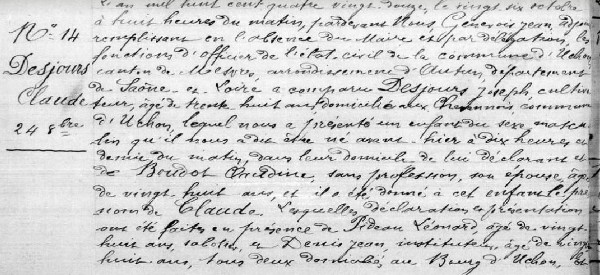 L'an mil huit cent quatre vingt douze, le vingt six octobre
à huit heures du matin, pardevant Nous Genevois Jean, adjoint
remplissant en l'absence du Maire et par délégation, les
fonctions d'officier de l'état civil de la commune d'Uchon,
canton de Mesvres, arrondissement d'Autun, département
de Saône-et-Loire a comparu Desjours Joseph, cultiva
teur, âgé de trente huit ans domicilié aux commune
d'Uchon, lequel nous a présenté un enfant du sexe mascu
lin qu'il nous a dit être né avant-hier à dix heures et
demie du matin, dans leur domicile de lui déclarant et
de Boudot Claudine, sans profession, son épouse, âgée
de vingt huit ans, et il a été donné à cet enfant le pré
nom de Claude. Lesquelles déclaration et présentation
ont été faites en présence de Léonard, âgé de vingt
huit ans, et Denis Jean, instituteur, âgé de vingt
huit ans, tous deux domiciliés au Bourg d'Uchon, et
N° 14
Desjours
Claude
24 8bre